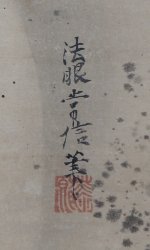 法眼常信筆